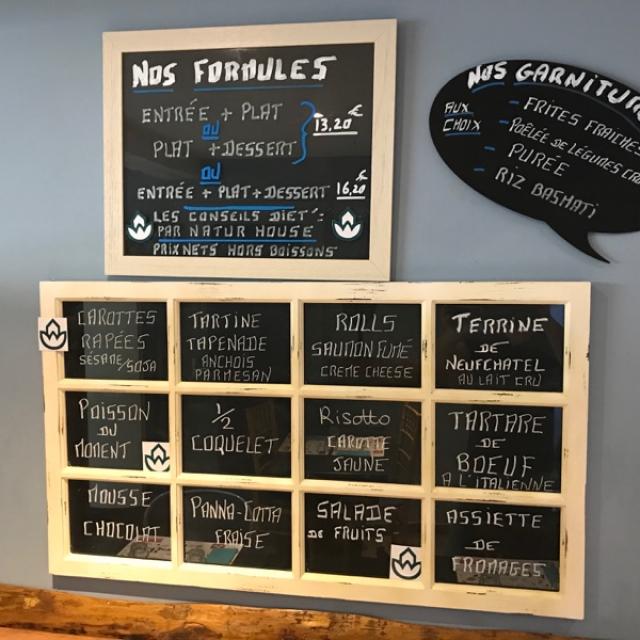 NOS FORMULES
ENTRÉE + PLAT
OU
PLAT + DESSERT
13,20 €
OU
ENTRÉE + PLAT + DESSERT 16,20 €
LES CONSEILS DIET':
PAR NATUR HOUSE
PRIX NETS HORS BOISSONS
NOS GARNITUR
AUX
CHOIX
- FRITES FRAICHES
- POÊLÉE DE LÉGUMES CRO
- PURÉE
- RIZ BASMATI
CAROTTES
RAPÉES
SÉSAME/SOJA
TARTINE
TAPENADE
ANCHOIS
PARMESAN
ROLLS
SAUMON FUMÉ
CREME CHEESE
TERRINE
DE
NEUFCHATEL
AU LAIT CRU
POISSON
DU
MOMENT
1/2
COQUELET
Risotto
CAROTTE
JAUNE
TARTARE
DE
BOEUF
A L'ITALIENNE
MOUSSE
CHOCOLAT
PANNA-COTTA
FRAISE
SALADE
DE FRUITS
ASSIETTE
DE
FROMAGES